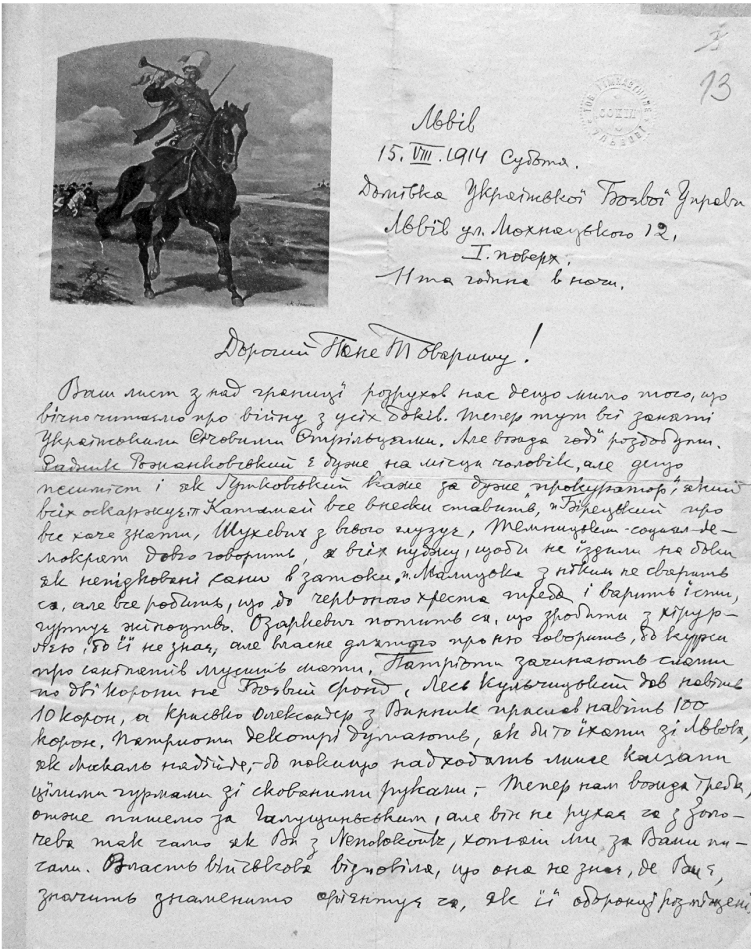 13
Львів
15. VIII. 1914 Субота.
Домівка Української Боєвої Управи
Львів ул. Мохнацького 12.
I. поверх.
11та година в ночи.
Дорогий Пане Товаришу!
Ваш лист з над границї розрухов нас дещо мимо того, що
вічно читаємо про війну з усїх боків. Тепер тут всї занятї
Українськими Сїчовими Стрільцями. Але вожда годї роздобути.
Радник Рожанковський є дуже на місци чоловік, але дещо
песиміст і як Гутковський каже за дуже "прокуратор", який
всїх оскаржує. Катамай все внески ставить, Бірецький про
все хоче знати, Шухевич з всього глузує, Темницький соціял-де-
мократ довго говорить, а всїх нудить, щоби не їздили на боки
як непідковані сани в затоки, Малицька з нїким не сварить
ся, але все робить, що до червоного хреста треба і варить їсти,
гуртує жіноцтво. Озаркевич потить ся, що зробити з хірур-
ґією, бо її не знає, але власне для того про ню говорить, бо курси
про санїтатів мусить мати. Патріоти зачинають слати
по двї корони на Боєвий фонд, Лесь Кульчицький дав навіть
10 корон, а Красько Олександер з Винник прислав навіть 100
корон. Патриоти декотрі думають, як би то їхати зі Львова,
як москаль надїйде, - бо покищо надходять лише кацапи
цїлими гурмами зі скованими руками; - Тепер нам вожда треба,
отже пишемо за Галущинським, але він не рухає ся з Золо-
чева так само як Ви з Nepolokoutz, хотяй ми за Вами пи-
сали. Власть військова відповіла, що она не знає, де Ви є,
значить знаменито орієнтує ся, як її оборонцї розміщені